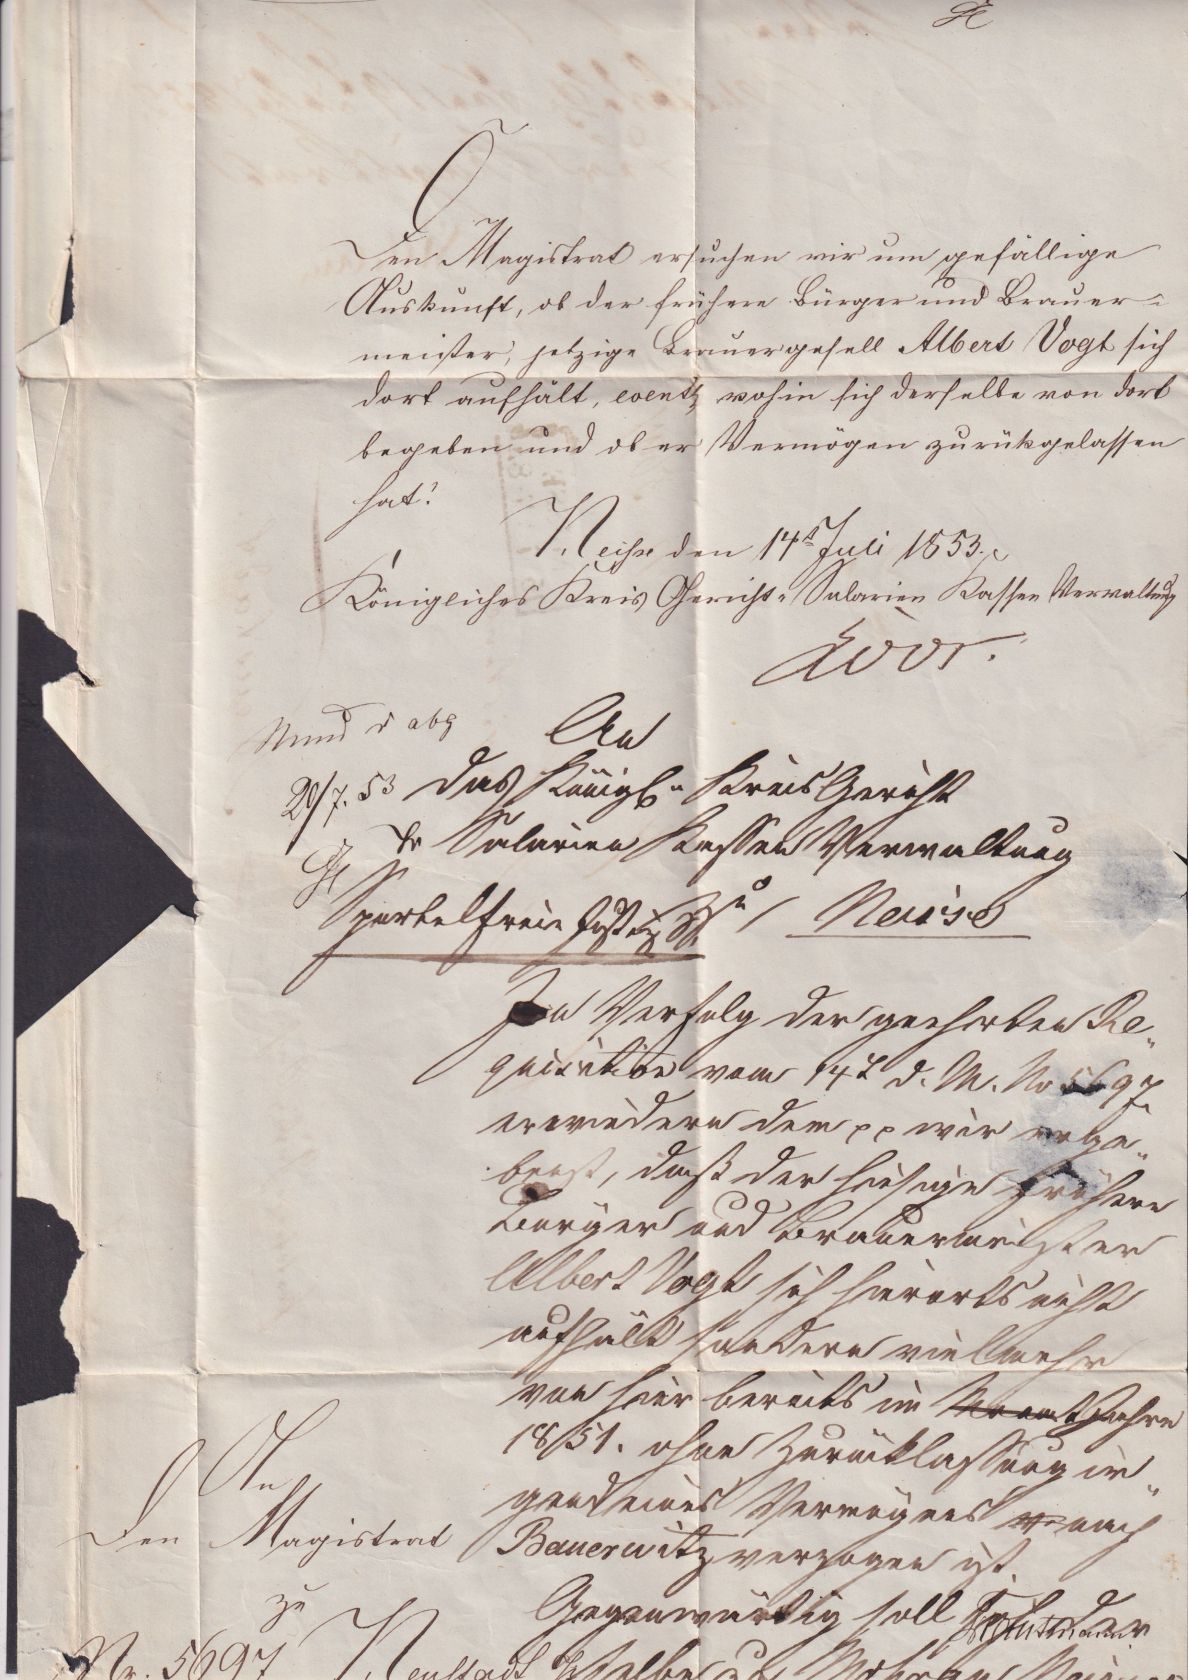 Den Magistrat ersuchen wir um gefällige
Auskunft, ob der frühere Bürger und Brauer-
meister, jetzige Brauergesell Albert Vogt sich
dort aufhält, event. wohin sich derselbe von dort
begeben und ob er Vermögen zurükgelassen
hat?
Neisse den 14t Juli 1853.
Königliches Kreis Gericht-Salarien Kassen Verwaltung
Mund u abg
20/7. 53
An
das Königl. Kreis Gericht
Salarien Kassen Verwaltung
zu Neisse
Sportelfreie Justiz S.
In Verfolg der geehrten Re-
quisition vom 14t d. M. No 5697
erwiedern dem pp wir erge-
benst, daß der hiesige frühere
Bürger und Brauermeister
Albert Vogt sich hierorts nicht
aufhält sondern vielmehr
von hier bereits im Jahre
1851. ohne Zurücklassung ir-
gend eines Vermögens nach
Bauerwitz verzogen ist.
Gegenwärtig soll der
selbe zu
An
Den Magistrat
zu
Neustadt
Nr. 5697